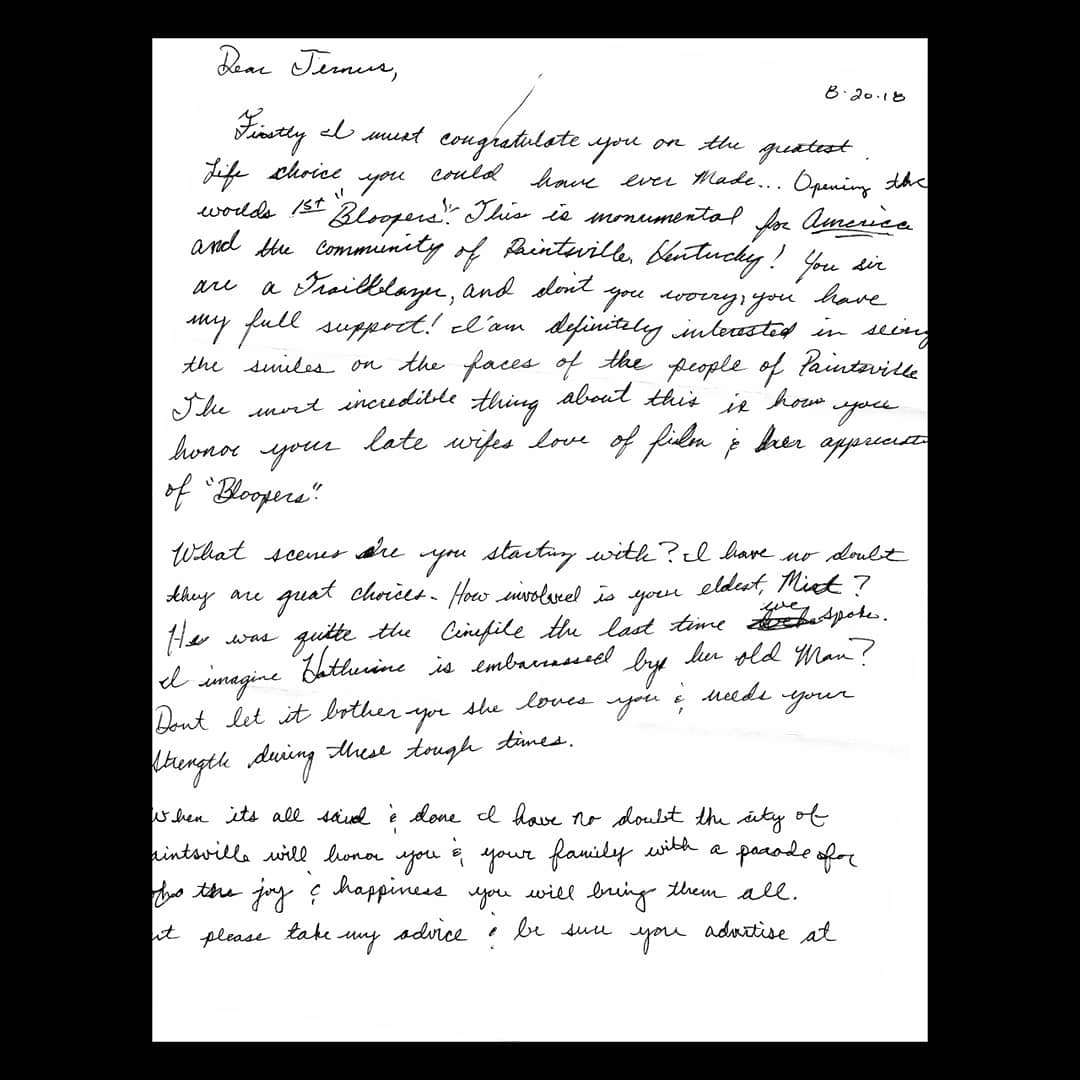 Dear Jernus,
8·20·18
Firstly I must congratulate you on the greatest
Life choice you could have ever Made... Opening the
worlds 1st "Bloopers". This is monumental for America
and the community of Paintsville, Kentucky! You sir
are a Trailblazer, and don't you worry, you have
my full support! I'am definitely interested in seeing
the smiles on the faces of the people of Paintsville
The most incredible thing about this is how you
honor your late wifes love of film & her appreciat
of "Bloopers".
What scenes are you starting with? I have no doubt
they are great choices - How involved is your eldest,
He was quitte the Cinefile the last time we spoke.
I imagine Katherine is embarrassed bye her old Man?
Dont let it bother you she loves you & needs your
Strength during these tough times.
When its all said & done I have no doubt the city of
aintsville will honor you & your family with a parade for
the joy & happiness you will bring them all.
ut please take my advice & be sure you advertise at